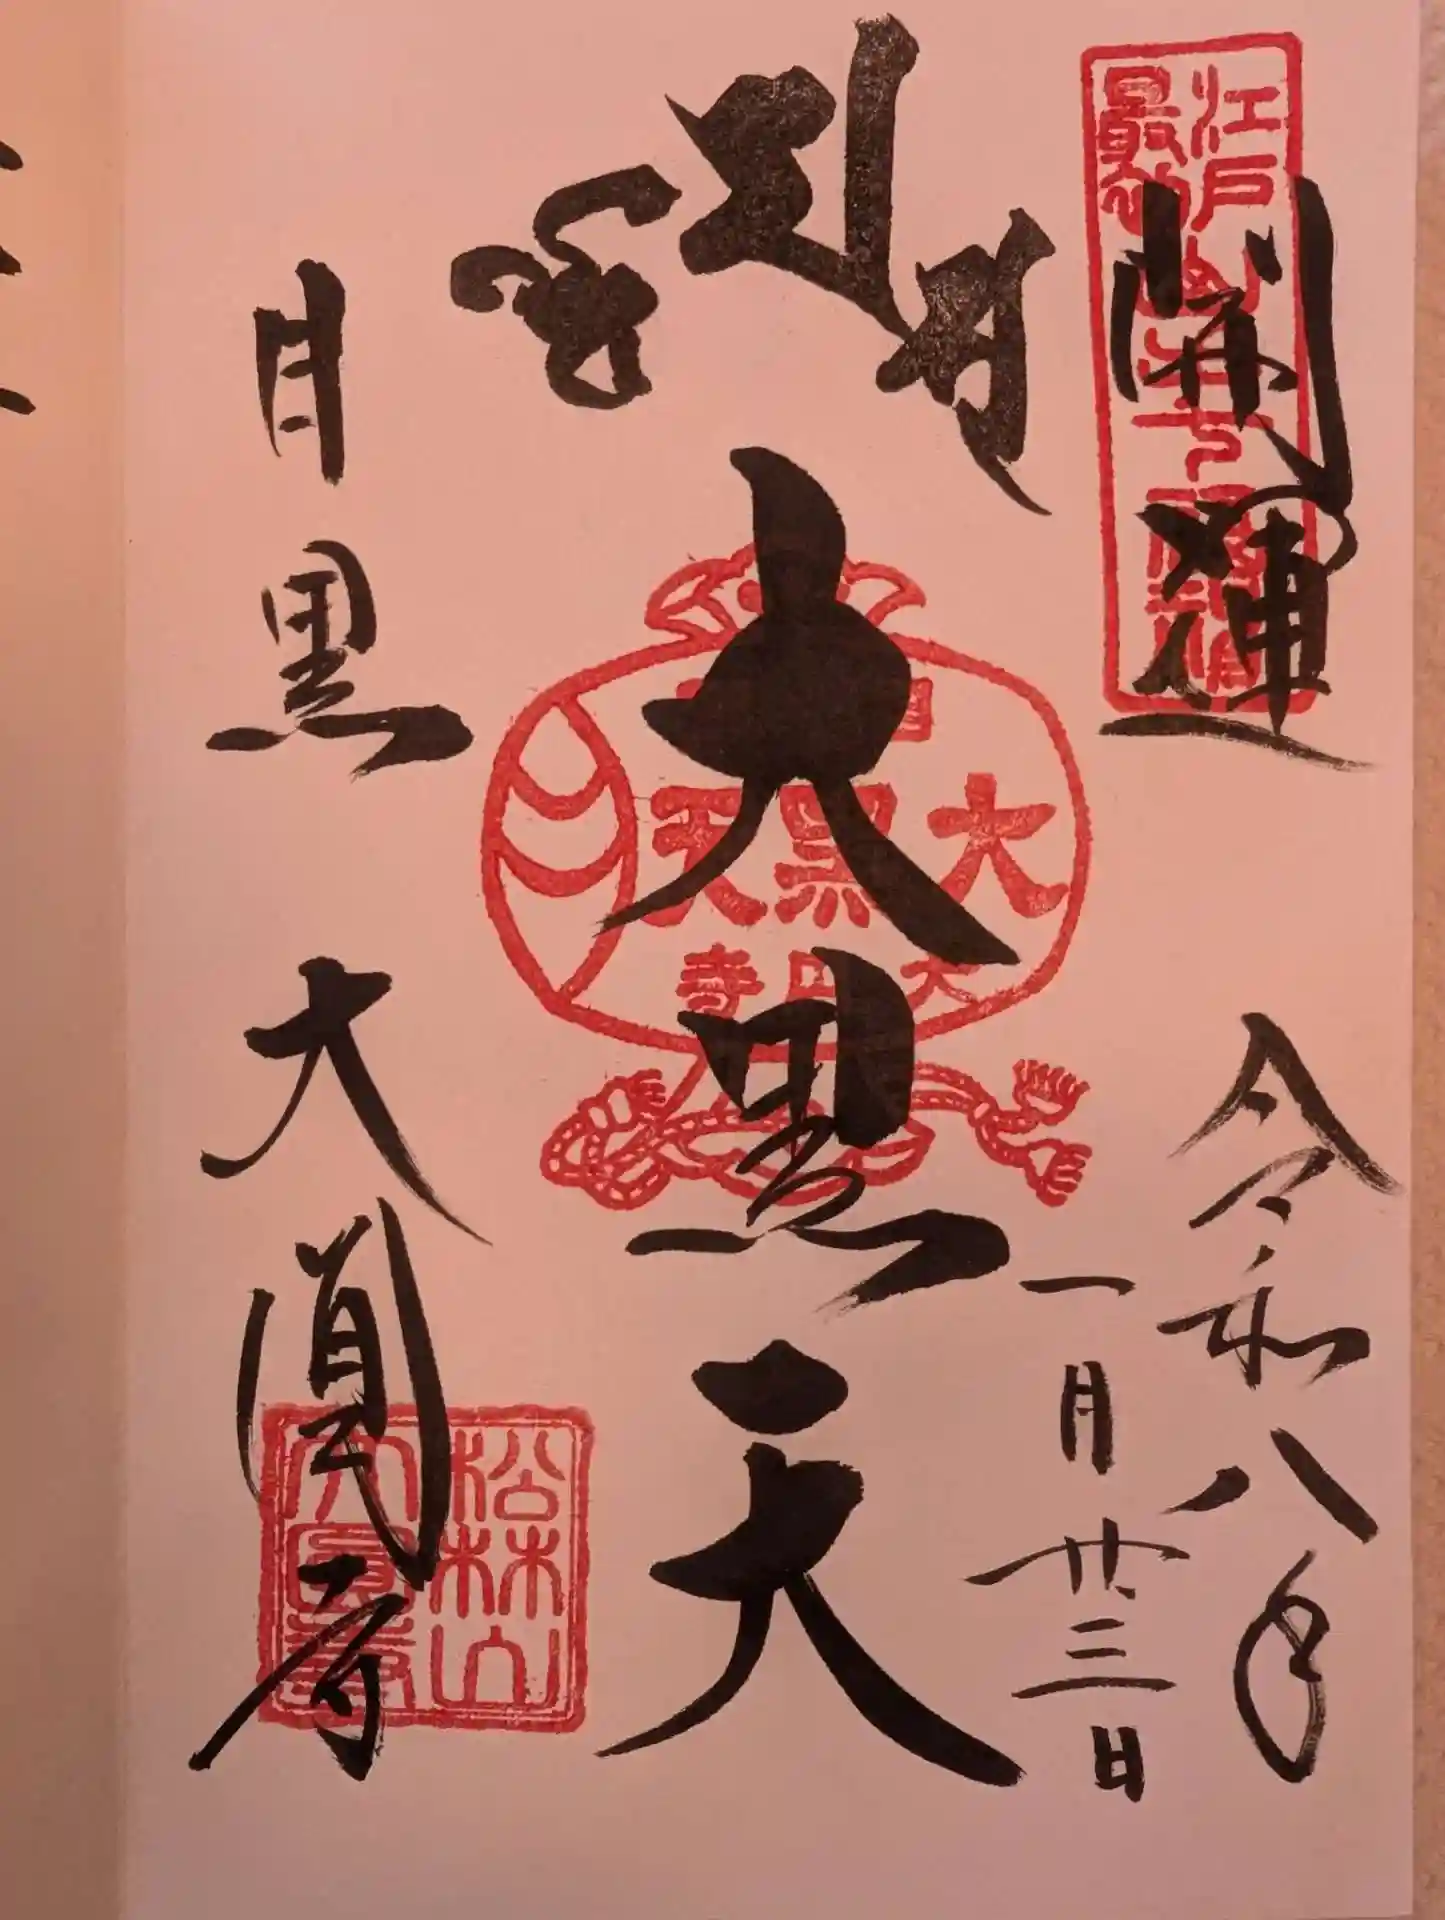 開運
江戸
最初山手七福神
令和八年
一月廿三日
大黒天
大黒天
大円寺
目黒
大圓寺
松林山
大圓寺